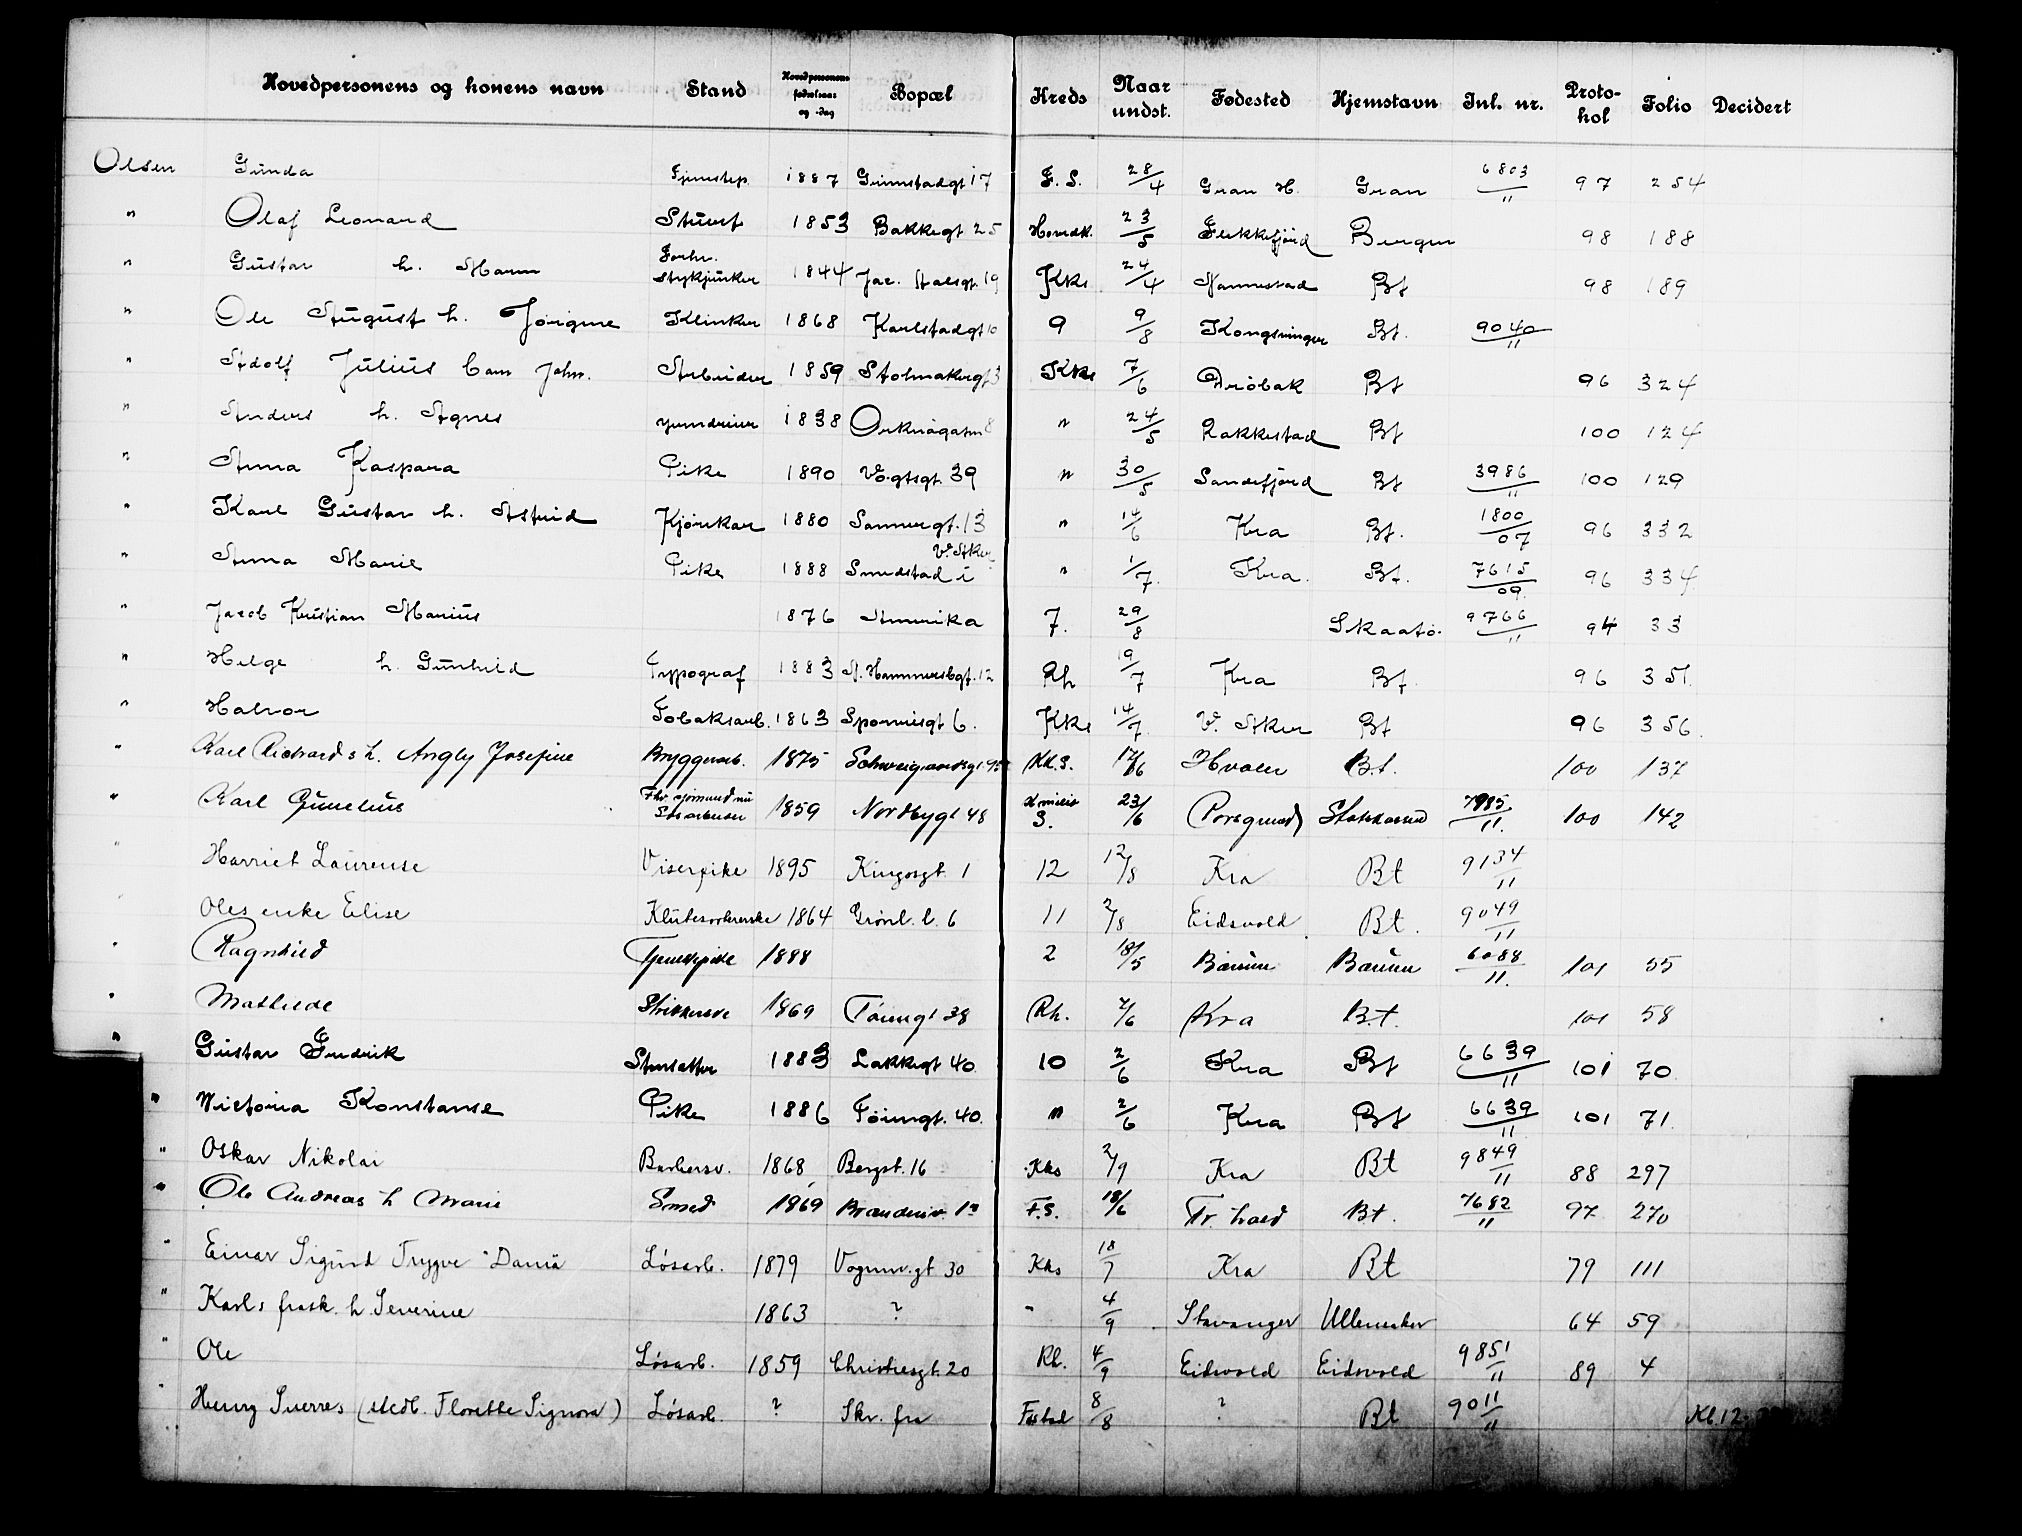 Hovedpersonens og konens navn Stand Hovedpersonens fødselsaar og -dag Bopæl Kreds Naar undst. Fødested Hjemstavn Inl. nr. Protokol Folio Decidert
Olsen Gunda Tjenstep. 1887 Grimstadgt 17 F. S. 28/4 Gran H. Gran 6803/11 97 254
" Olaf Leonard Stuert 1853 Bakkegt 25 Hovedk. 23/5 Flekkefjord Bergen 98 188
" Gustav h. Maren Forhv. Stykjunker 1844 Jac. Aalsgt. 19 Kks 24/4 Nannestad Bt 98 189
" Ole August h. Jørgine Klinker 1868 Karlstadgt 10 9 9/8 Kongsvinger Bt. 9040/11
" Adolf Julius Cam Johs. Arbeider 1859 Stolmakergt 3 Kks 7/6 Drøbak Bt 96 324
" Anders h. Agnes 1838 Orknøgaten 8 " 24/5 Rakkestad Bt 100 124
" Anna Kaspara Pike 1890 Vogtsgt 39 " 30/5 Sandefjord Bt 3986/11 100 129
" Karl Gustav h. Astrid Kjørekar 1880 Sannergt. 13 " 14/6 Kra Bt. 1800/07 96 332
" Anna Marie Pike 1888 Smedstad i V. Aker " 1/7. Kra. Bt. 7615/09. 96 334
" Jacob Kristian Marius 1876 Amerika 7. 29/8 Skaatø. 9766/11 94 33
" Helge h. Gunhild Typograf 1883 St. Hammersbgt. 12 Rh 19/7 Kra Bt. 96 351.
" Halvor Tobaksarb. 1863 Sporveisgt 6. Kks 14/7. V. Aker Bt 96 356.
" Karl Richards h. Angly Josefine Bryggerarb. 1875 Schweigaardsgt. 95 Kk. S. 17/6 Hvaler B.t. 100 137
" Karl Gunelius Fhv. sjømand nu Stuarbeider 1859 Nordbygt 48 S. 23/6 Porsgrund Statskassen 7985/11. 100 142
" Harriet Laurense Viserpike 1895 Kingosgt. 1 12 12/8 Kra Bt 9134/11
" Oles enke Elise Klutesorterske 1864 Grønl. l. 6 11 2/8 Eidsvold Bt. 9049/11
" Ragnhild Tjenestepike 1888 2 18/5 Bærum Bærum 6088/11. 101 55
" Mathilde Strikkerske 1869 Tøiengt 38 Rh. 2/6 Kra B.t. 101 58
" Gustav Fredrik Stensætter 1883 Lakkegt 40. 10 2/6 Kra Bt 6639/11 101 70
" Victoria Konstanse Pike 1886 Tøiengt. 40. " 2/6 Kra Bt 6639/11 101 71
" Oskar Nikolai Barbersv. 1868 Bergst. 16 Kks 2/9 Kra Bt 9849/11 88 297
" Ole Andreas h Marie Smed 1869 Brænderiv. 12 F.S. 18/6 Tr. hald Bt. 7682/11 97 270
" Einar Sigurd Trygve "Dania Løsarb. 1879 Vognm.gt 30 Kks 18/7 Kra Bt 79 111
" Karls frask. h. Severine 1863 ? " 4/9 Stavanger Ullensaker 64 59
" Ole Løsarb. 1859 Christiesgt. 20 Rh. 4/9 Eidsvold Eidsvold 9851/11 89 4
" Henry Sverres (Ekedl. Florette Signora) Løsarb. ? Skr. fra Fattst 8/8 ? Bt 9011/11 Kl. 12